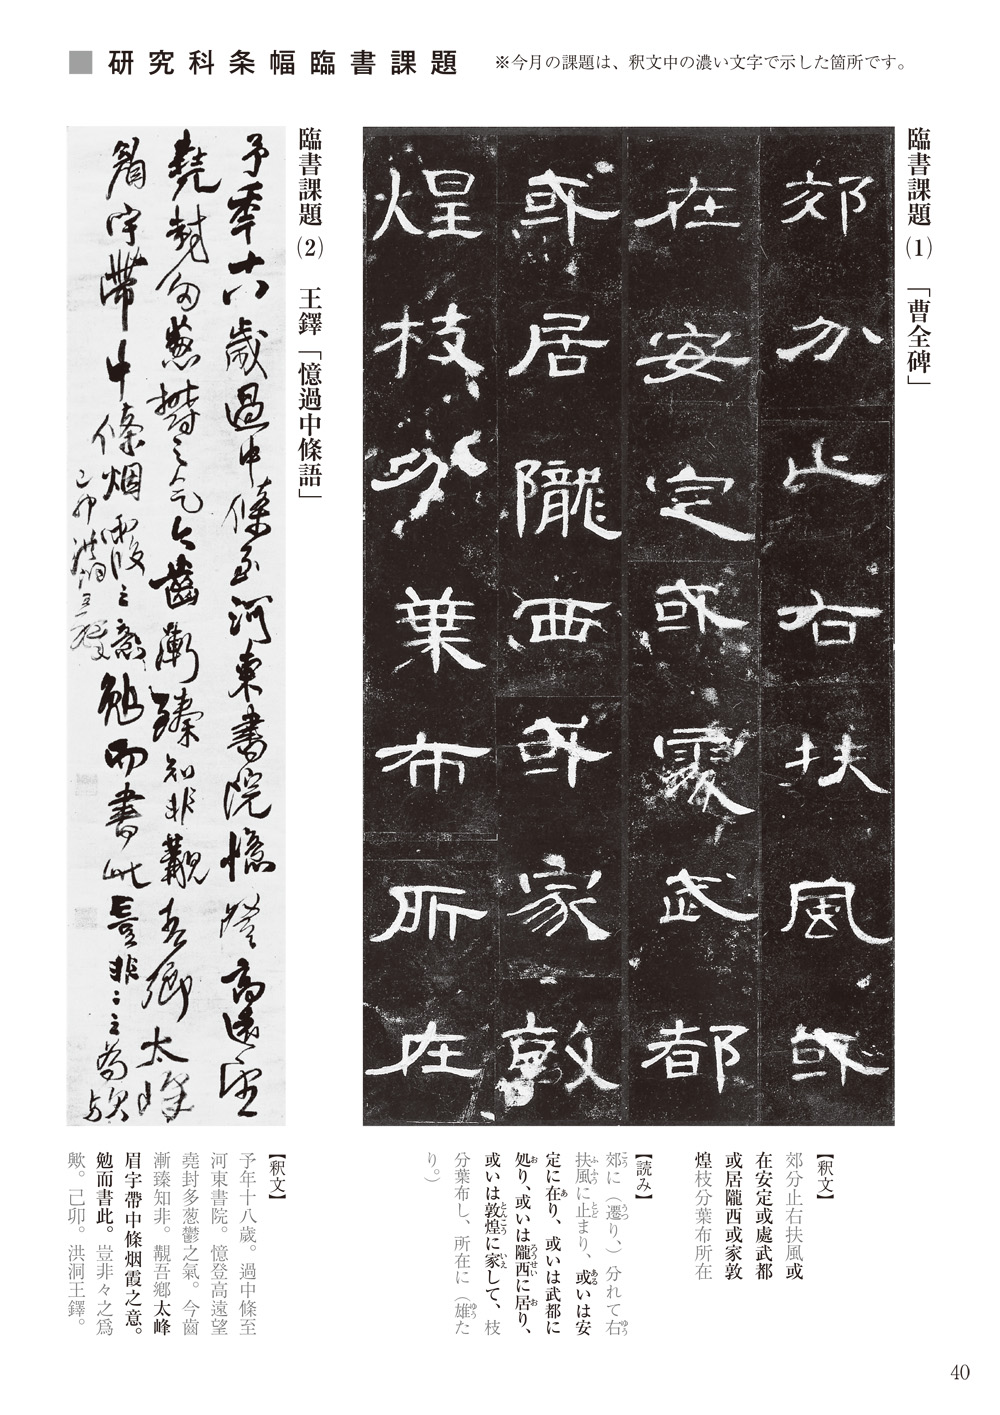 ■ 研究科条幅臨書課題
※今月の課題は、釈文中の濃い文字で示した箇所です。
臨書課題(1) 「曹全碑」
郊分止右扶風或
在安定或處武都
或居隴西或家敦
煌枝分葉布所在
臨書課題(2) 王鐸「憶過中條語」
予年十八歲過中條至河東書院憶登高遠望
堯封多葱鬱之氣今齒漸臻知非覯吾鄉太峰
眉宇帶中條烟霞之意勉而書此豈非々之為歟
己卯洪洞王鐸
【釈文】
郊分止右扶風或
在安定或處武都
或居隴西或家敦
煌枝分葉布所在
【読み】
郊に(遷り、)分れて右
扶風に止まり、或いは安
定に在り、或いは武都に
処り、或いは隴西に居り、
或いは敦煌に家して、枝
分葉布し、所在に(雄た
り。)
【釈文】
予年十八歲。過中條至
河東書院。憶登高遠望
堯封多葱鬱之氣。今齒
漸臻知非。覯吾鄉太峰
眉宇帶中條烟霞之意。
勉而書此。豈非々之爲
歟。己卯。洪洞王鐸。
40